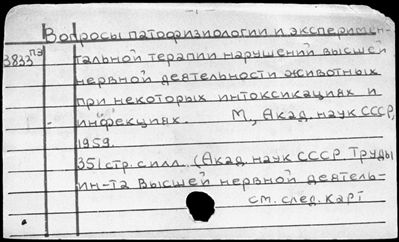 Вопросы патофизиологии и эксперимен-
3833па тальной терапии нарушений высшей
нервной деятельности животных
при некоторых интоксикациях и
инфекциях. М., Акад. наук СССР,
1959.
351 стр. с илл. (Акад. наук СССР Труды
ин-та Высшей нервной деятель=
см. след. карт